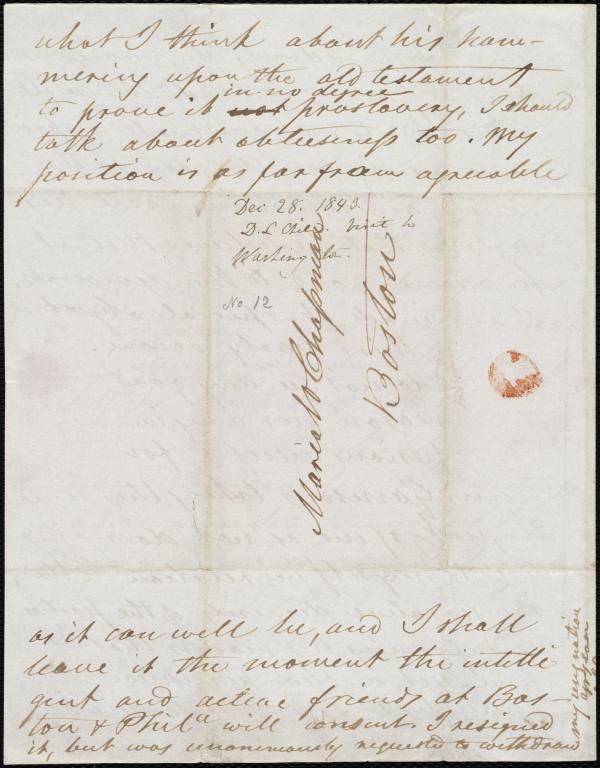 what I think about his ham-
mering upon the old testament
in no degree
to prove it not proslavery, I should
talk about obtuseness too. My
position is as far from agreeable
Dec 28. 1843.
D. L. Child. Visit to
Washington.
No. 12
Maria W Chapman
Boston
as it can well be, and I shall
leave it the moment the intelli
gent and active friends at Bos-
ton & Phila will consent. I resigned
it, but was unanimously requested to withdraw
my resignation